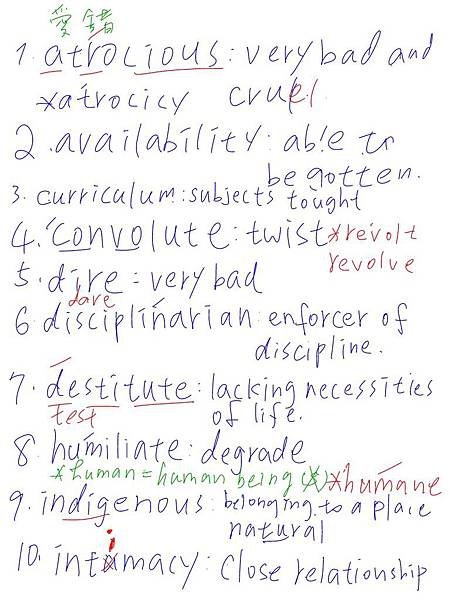 愛 錯
1. atrocious: very bad and
*atrocicy cruel
2. availability: able to
be gotten.
3. curriculum: subjects tought
4. convolute: twist *revolt
revolve
5. dire = very bad
dare
6. disciplinarian: enforcer of
discipline.
7. destitute: lacking necessities
test of life.
8. humiliate: degrade
*human = human being (人) *humane
9. indigenous: belonging to a place
natural
10. intimacy: close relationship